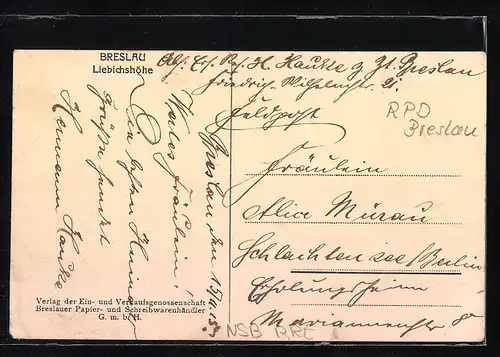 BRESLAU
Liebichshöhe
Abs. Ers. Res. H. Hauke z. Zt. Breslau
Friedrich-Wilhelmstr. 21.
Feldpost
RPD
Breslau
Fräulein
Alice Murau
Schlachtensee/Berlin
Erholungsheim
Breslau, den
Wertes Fräulein!
Die besten
Grüße sendet
Hermann Hauke
Verlag der Ein- und Verkaufsgenossenschaft
Breslauer Papier- und Schreibwarenhändler
G. m. b. H.
NSB